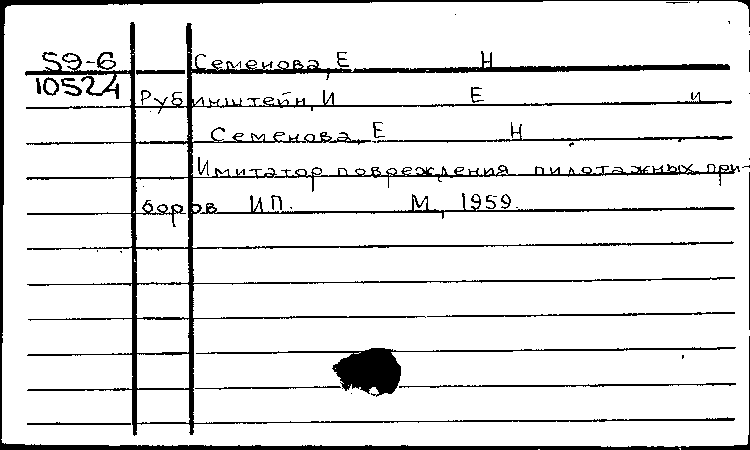 59-6 Семенова, Е Н
10524
Рубинштейн, И Е и
Семенова, Е Н
Имитатор повреждения пилотажных при-
боров ИП. М., 1959.